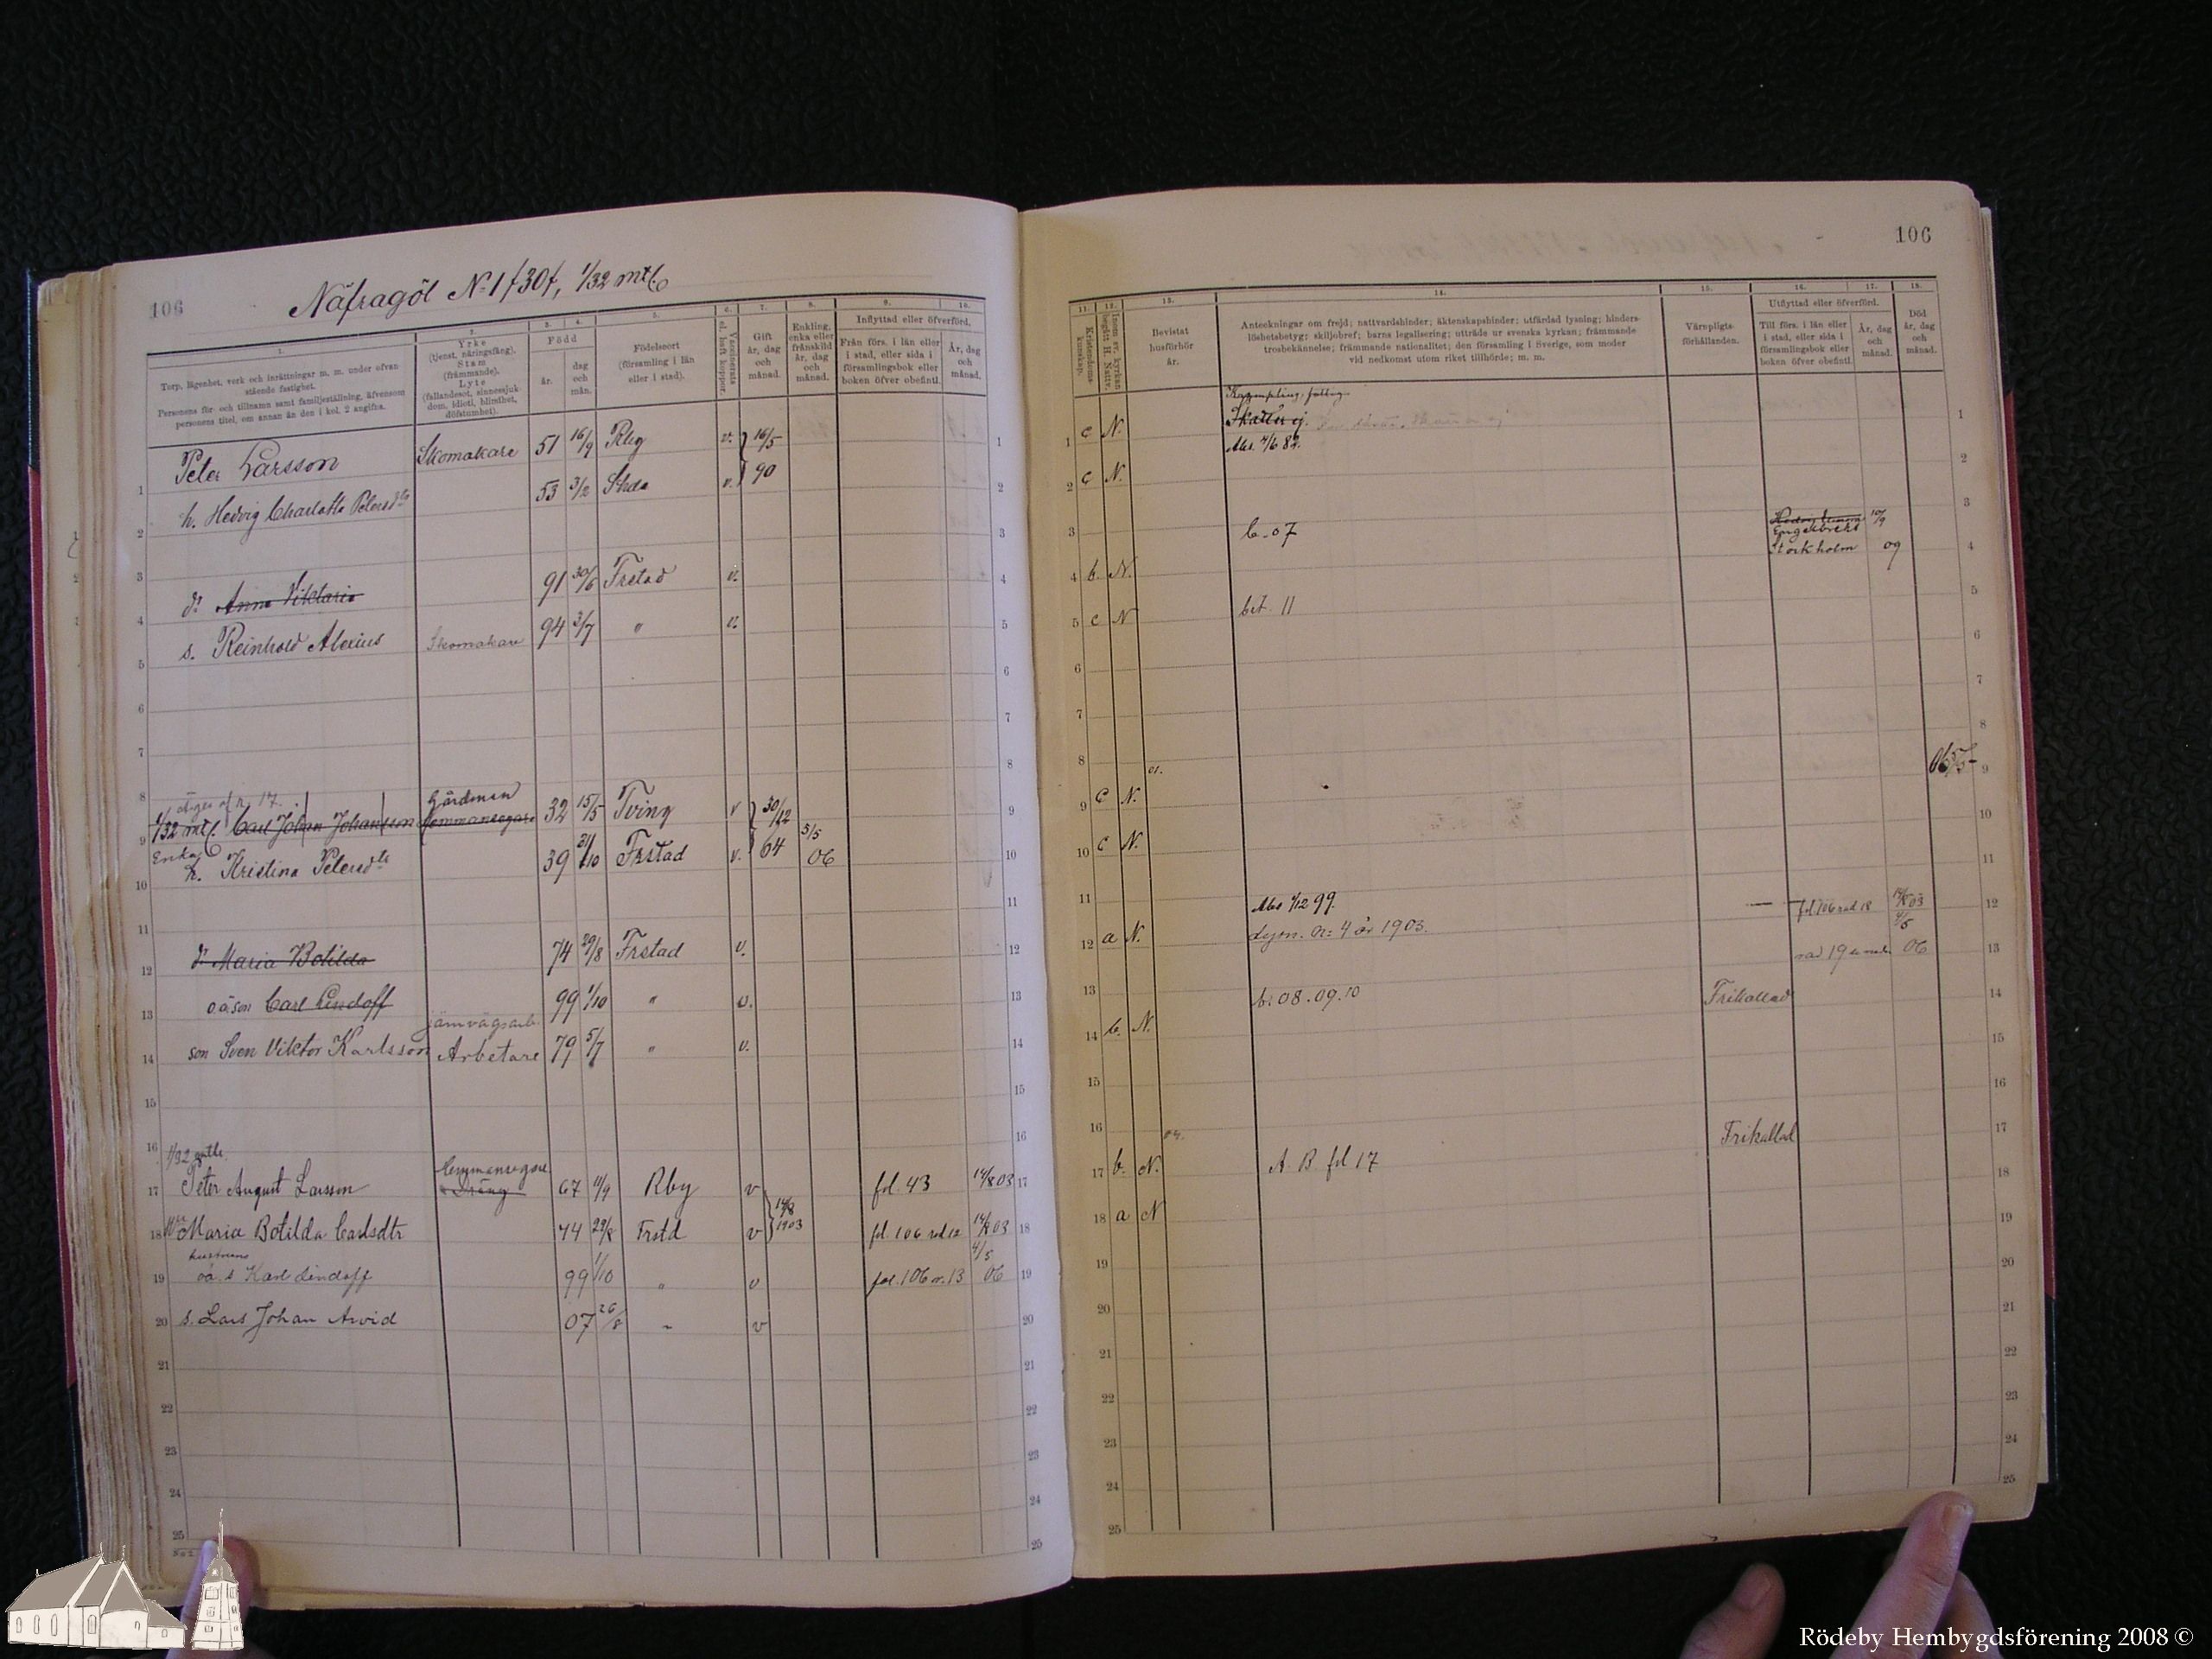 106
Näfragöl No 1 f30f, 1/32 mtl.
1. 2. 3. 4. 5. 6. 7. 8. 9. 10.
Torp, lägenhet, verk och inrättningar m. m. under ofvan stående fastighet.
Personens för- och tillnamn samt familjeställning, äfvensom personens titel, om annan än den i kol. 2 angifna.
Yrke (tjenst, näringsfång). Stam (främmande). Lyte (fallandesot, sinnessjukdom, idioti, blindhet, döfstumhet).
Född
år.
dag och mån.
Födelseort (församling i län eller i stad).
Vaccinerats el. haft koppor.
Gift år, dag och månad.
Enkling, enka eller frånskild år, dag och månad.
Inflyttad eller öfverförd.
Från förs. i län eller i stad, eller sida i församlingsbok eller boken öfver obefintl.
År, dag och månad.
1 Peter Larsson Skomakare 51 16/9 Rby v. 16/5 90
2 h. Hedvig Charlotta Petersdtr 53 3/2 v.
4 dr Anna Viktoria 91 30/6 Frstad v.
5 s. Reinhold Alexius Skomakare 94 3/7 " v.
äges af n. 17.
9 1/32 mtl. Carl Johan Johansson Gårdman Hemmansegare 32 15/5 Tving v 30/12 64
10 Enka h. Kristina Petersdtr 39 21/10 Frstad v. 5/5 06
12 dr Maria Botilda 74 29/8 Frstad v.
13 o.ä.son Carl Lindoff 99 1/10 " v.
14 son Sven Viktor Karlsson järnvägsarb. Arbetare 79 5/7 " v.
1/32 mtl.
17 Peter August Larsson Hemmansegare Dräng 67 11/9 Rby v 14/8 1903 fol. 43 14/8 03
18 Maria Botilda Carlsdtr 74 29/8 Frstd v fol. 106 rad 12 14/8 03
19 hustruns oä. s Karl Lindoff 99 1/10 " v fol. 106 r. 13 4/5 06
20 s. Lars Johan Arvid 07 26/8 " v
106
11. 12. 13. 14. 15. 16. 17. 18.
Kristendomskunskap.
Inom sv. kyrkan begått H. Nattv.
Bevistat husförhör år.
Anteckningar om frejd; nattvardshinder; äktenskapshinder; utfärdad lysning; hinderslöshetsbetyg; skiljobref; barns legalisering; utträde ur svenska kyrkan; främmande trosbekännelse; främmande nationalitet; den församling i Sverige, som moder vid nedkomst utom riket tillhörde; m. m.
Värnpligtsförhållanden.
Utflyttad eller öfverförd.
Till förs. i län eller i stad, eller sida i församlingsbok eller boken öfver obefintl.
År, dag och månad.
Död år, dag och månad.
1 c N.
2 c N.
4 b. N. b. 07 Engelbrekt Stockholm 10/9 09
5 c N bet. 11
9 c N. 01. 06 5/5
10 c N.
Abs 1/12 99.
12 a N. lysn. n: 4 år 1903. fol. 106 rad 18 14/8 03
13 rad 19 4/5 06
14 b. N. b. 08. 09. 10 Frikallad
17 b. N. 04. A. B. fol 17 Frikallad
18 a N
Rödeby Hembygdsförening 2008 ©